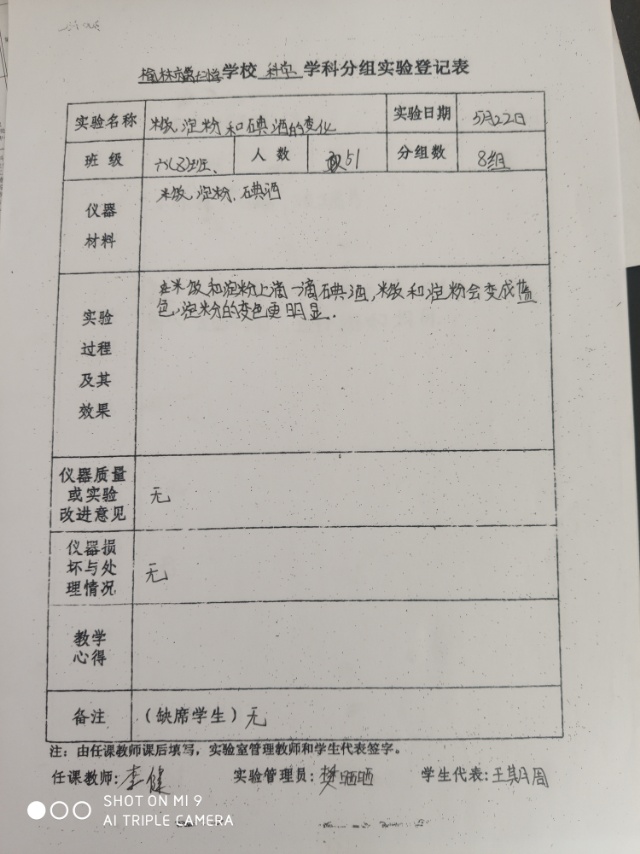 学校 科学 学科分组实验登记表
实验名称 米饭,淀粉和碘酒的变化 实验日期 5月22日
班级 六(8)班、 人数 51 分组数 8组
仪器材料 米饭,淀粉,碘酒
实验过程及其效果
在米饭和淀粉上滴一滴碘酒,米饭和淀粉会变成蓝
色,淀粉的变色更明显.
仪器质量或实验改进意见 无
仪器损坏与处理情况 无
教学心得
备注 (缺席学生)无
注:由任课教师课后填写,实验室管理教师和学生代表签字。
任课教师:李健 实验管理员:樊晒晒 学生代表:王期周
SHOT ON MI 9
AI TRIPLE CAMERA